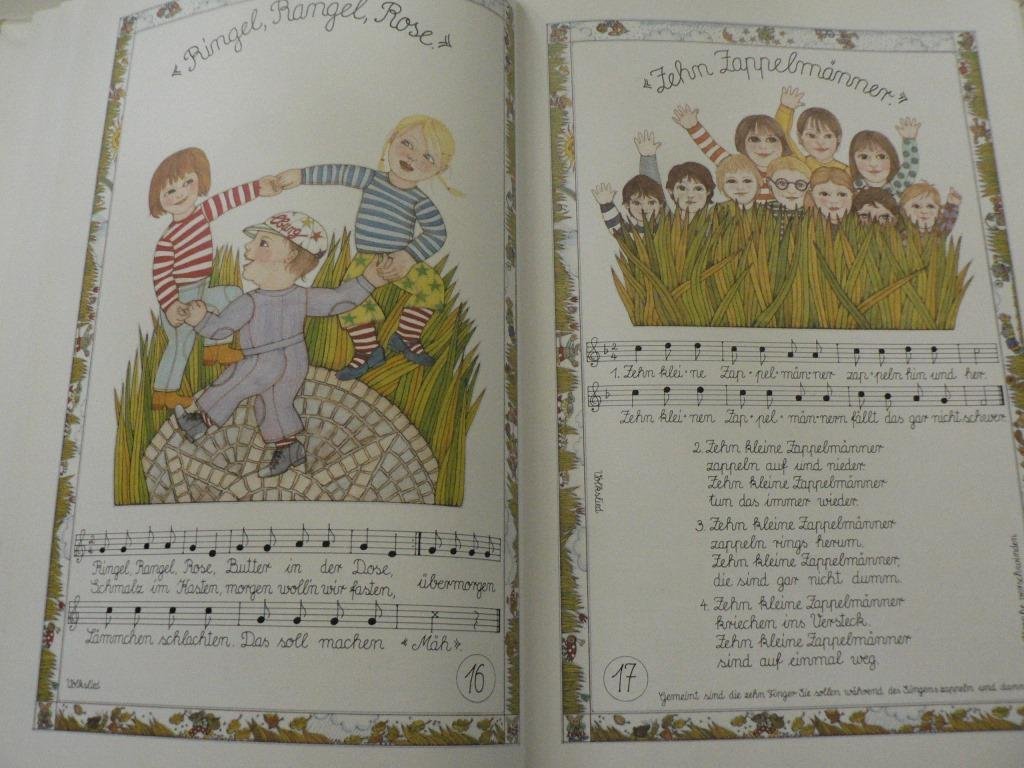 «Ringel, Rangel, Rose.»
Ringel, Rangel, Rose, Butter in der Dose,
Schmalz im Kasten, morgen woll'n wir fasten, übermorgen
Lämmchen schlachten. Das soll machen «Mäh».
Volkslied
16
«Zehn Zappelmänner.»
2 4
1. Zehn klei-ne Zap-pel-män-ner zap-peln hin und her.
Zehn klei-nen Zap-pel-män-nern fällt das gar nicht schwer
2. Zehn kleine Zappelmänner
zappeln auf und nieder.
Zehn kleine Zappelmänner
tun das immer wieder.
3. Zehn kleine Zappelmänner
zappeln rings herum.
Zehn kleine Zappelmänner,
die sind gar nicht dumm.
4. Zehn kleine Zappelmänner
kriechen ins Versteck.
Zehn kleine Zappelmänner
sind auf einmal weg.
Volkslied
17
Gemeint sind die zehn Finger. Sie sollen während des Singens zappeln und dann
verschwinden